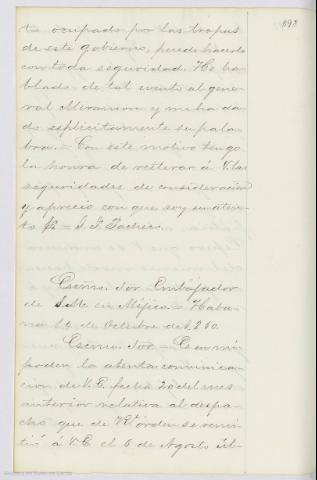 898
to ocupado por las tropas
de este gobierno, puede hacerlo
con toda seguridad. He ha
blado de tal evento al gene-
ral Miramon y me ha da
do esplicitamente su pala
bra. — Con este motivo tengo
la honra de reiterar á V. las
seguridades de consideracion
y aprecio con que soy su aten-
to = J. F. Pacheco.
Escmo. Sor. Embajador
de S. M. en Méjico = Haba
na 14 de Octubre de 1860.
Escmo. Sor. = En mi
poder la atenta comunica-
cion de V. E. fecha 20 del mes
anterior relativa al despa-
cho que de Rl. orden se remi-
tió á V. E. el 6 de Agosto úl-